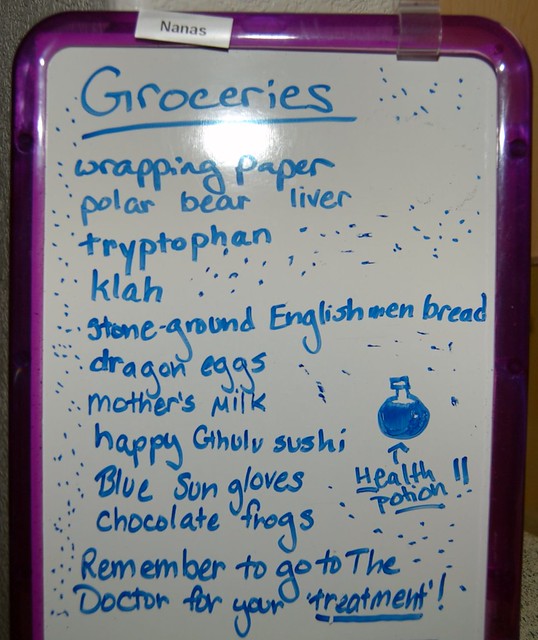 Nanas
Groceries
wrapping paper
polar bear liver
tryptophan
klah
stone-ground Englishmen bread
dragon eggs
mother's milk
happy Cthulu sushi
Blue Sun gloves
chocolate frogs
Health
potion !!
Remember to go to The
Doctor for your 'treatment'!